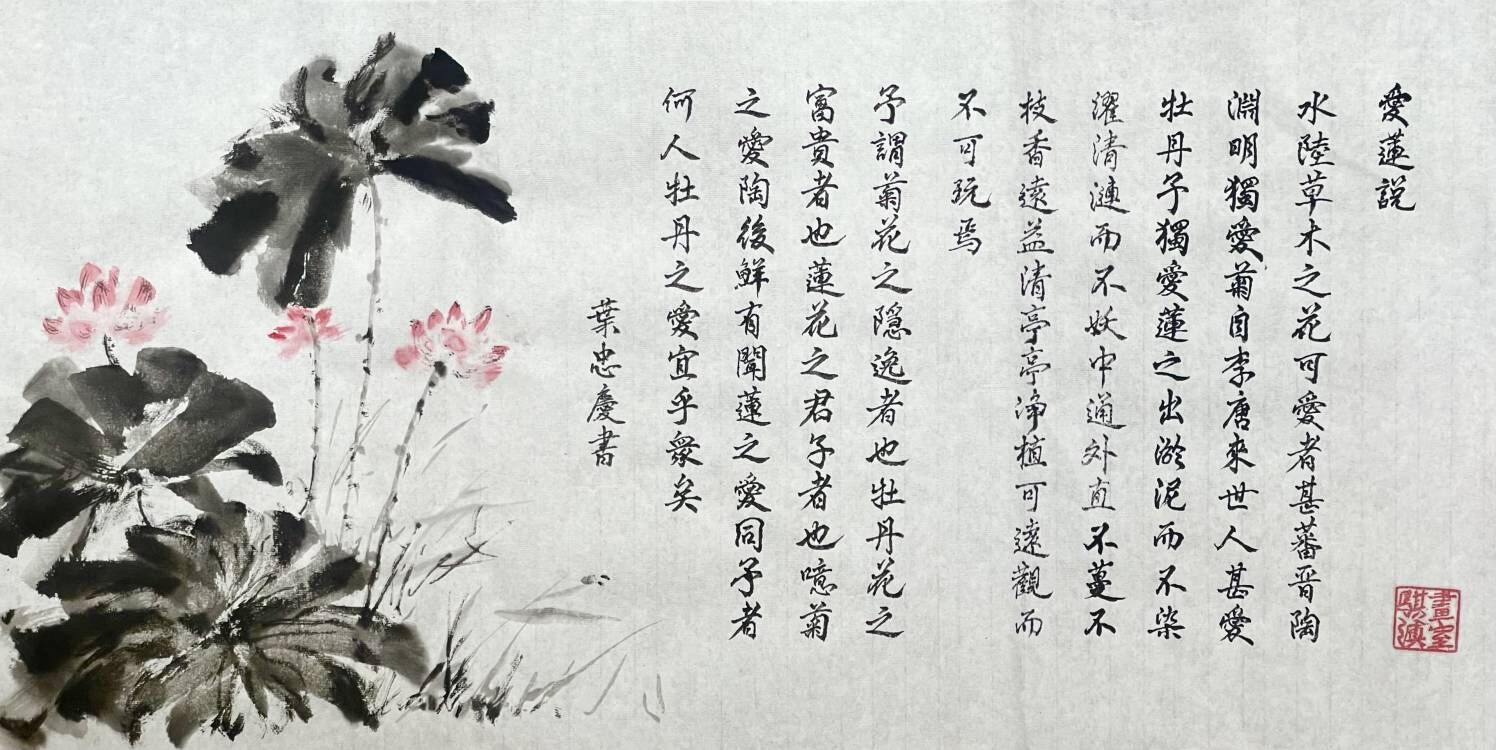 愛蓮說
水陸草木之花可愛者甚蕃晉陶
淵明獨愛菊自李唐來世人甚愛
牡丹予獨愛蓮之出淤泥而不染
濯清漣而不妖中通外直不蔓不
枝香遠益清亭亭淨植可遠觀而
不可玩焉
予謂菊花之隱逸者也牡丹花之
富貴者也蓮花之君子者也噫菊
之愛陶後鮮有聞蓮之愛同予者
何人牡丹之愛宜乎衆矣
葉忠慶書
畫室